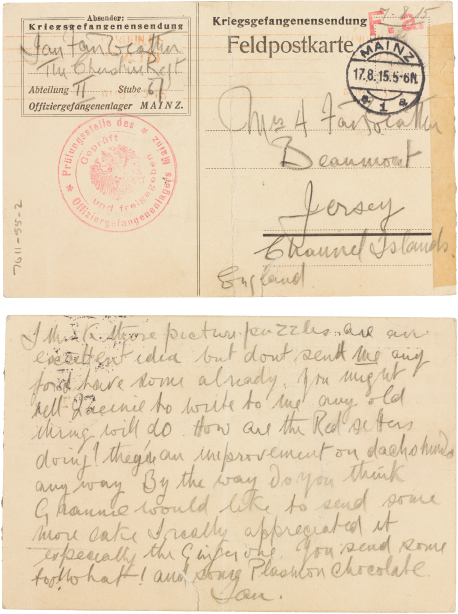 Absender:
Kriegsgefangenensendung
Ian Fairweather
The Cheshire Regt
Abteilung II Stube 61
Offiziergefangenenlager MAINZ.
Prüfungsstelle des Offiziergefangenenlagers Mainz
Geprüft und freigegeben
7611-55-2
Kriegsgefangenensendung
8.15
Feldpostkarte
F. a.
MAINZ
17.8.15.5-6N.
* 1 a.
Mrs Fairweather
Beaumont
Jersey
Channel Islands
England
picture puzzles are an
excellent idea but dont send me any
for I have some already. You might
tell Queenie to write to me any old
thing will do. How are the Red setters
doing! they're an improvement on dachshunds
any way By the way Do you think
Grannie would like to send some
more cake I really appreciated it
especially the Ginger one. You send some
too! what! and some Plasmon Chocolate.
Ian.